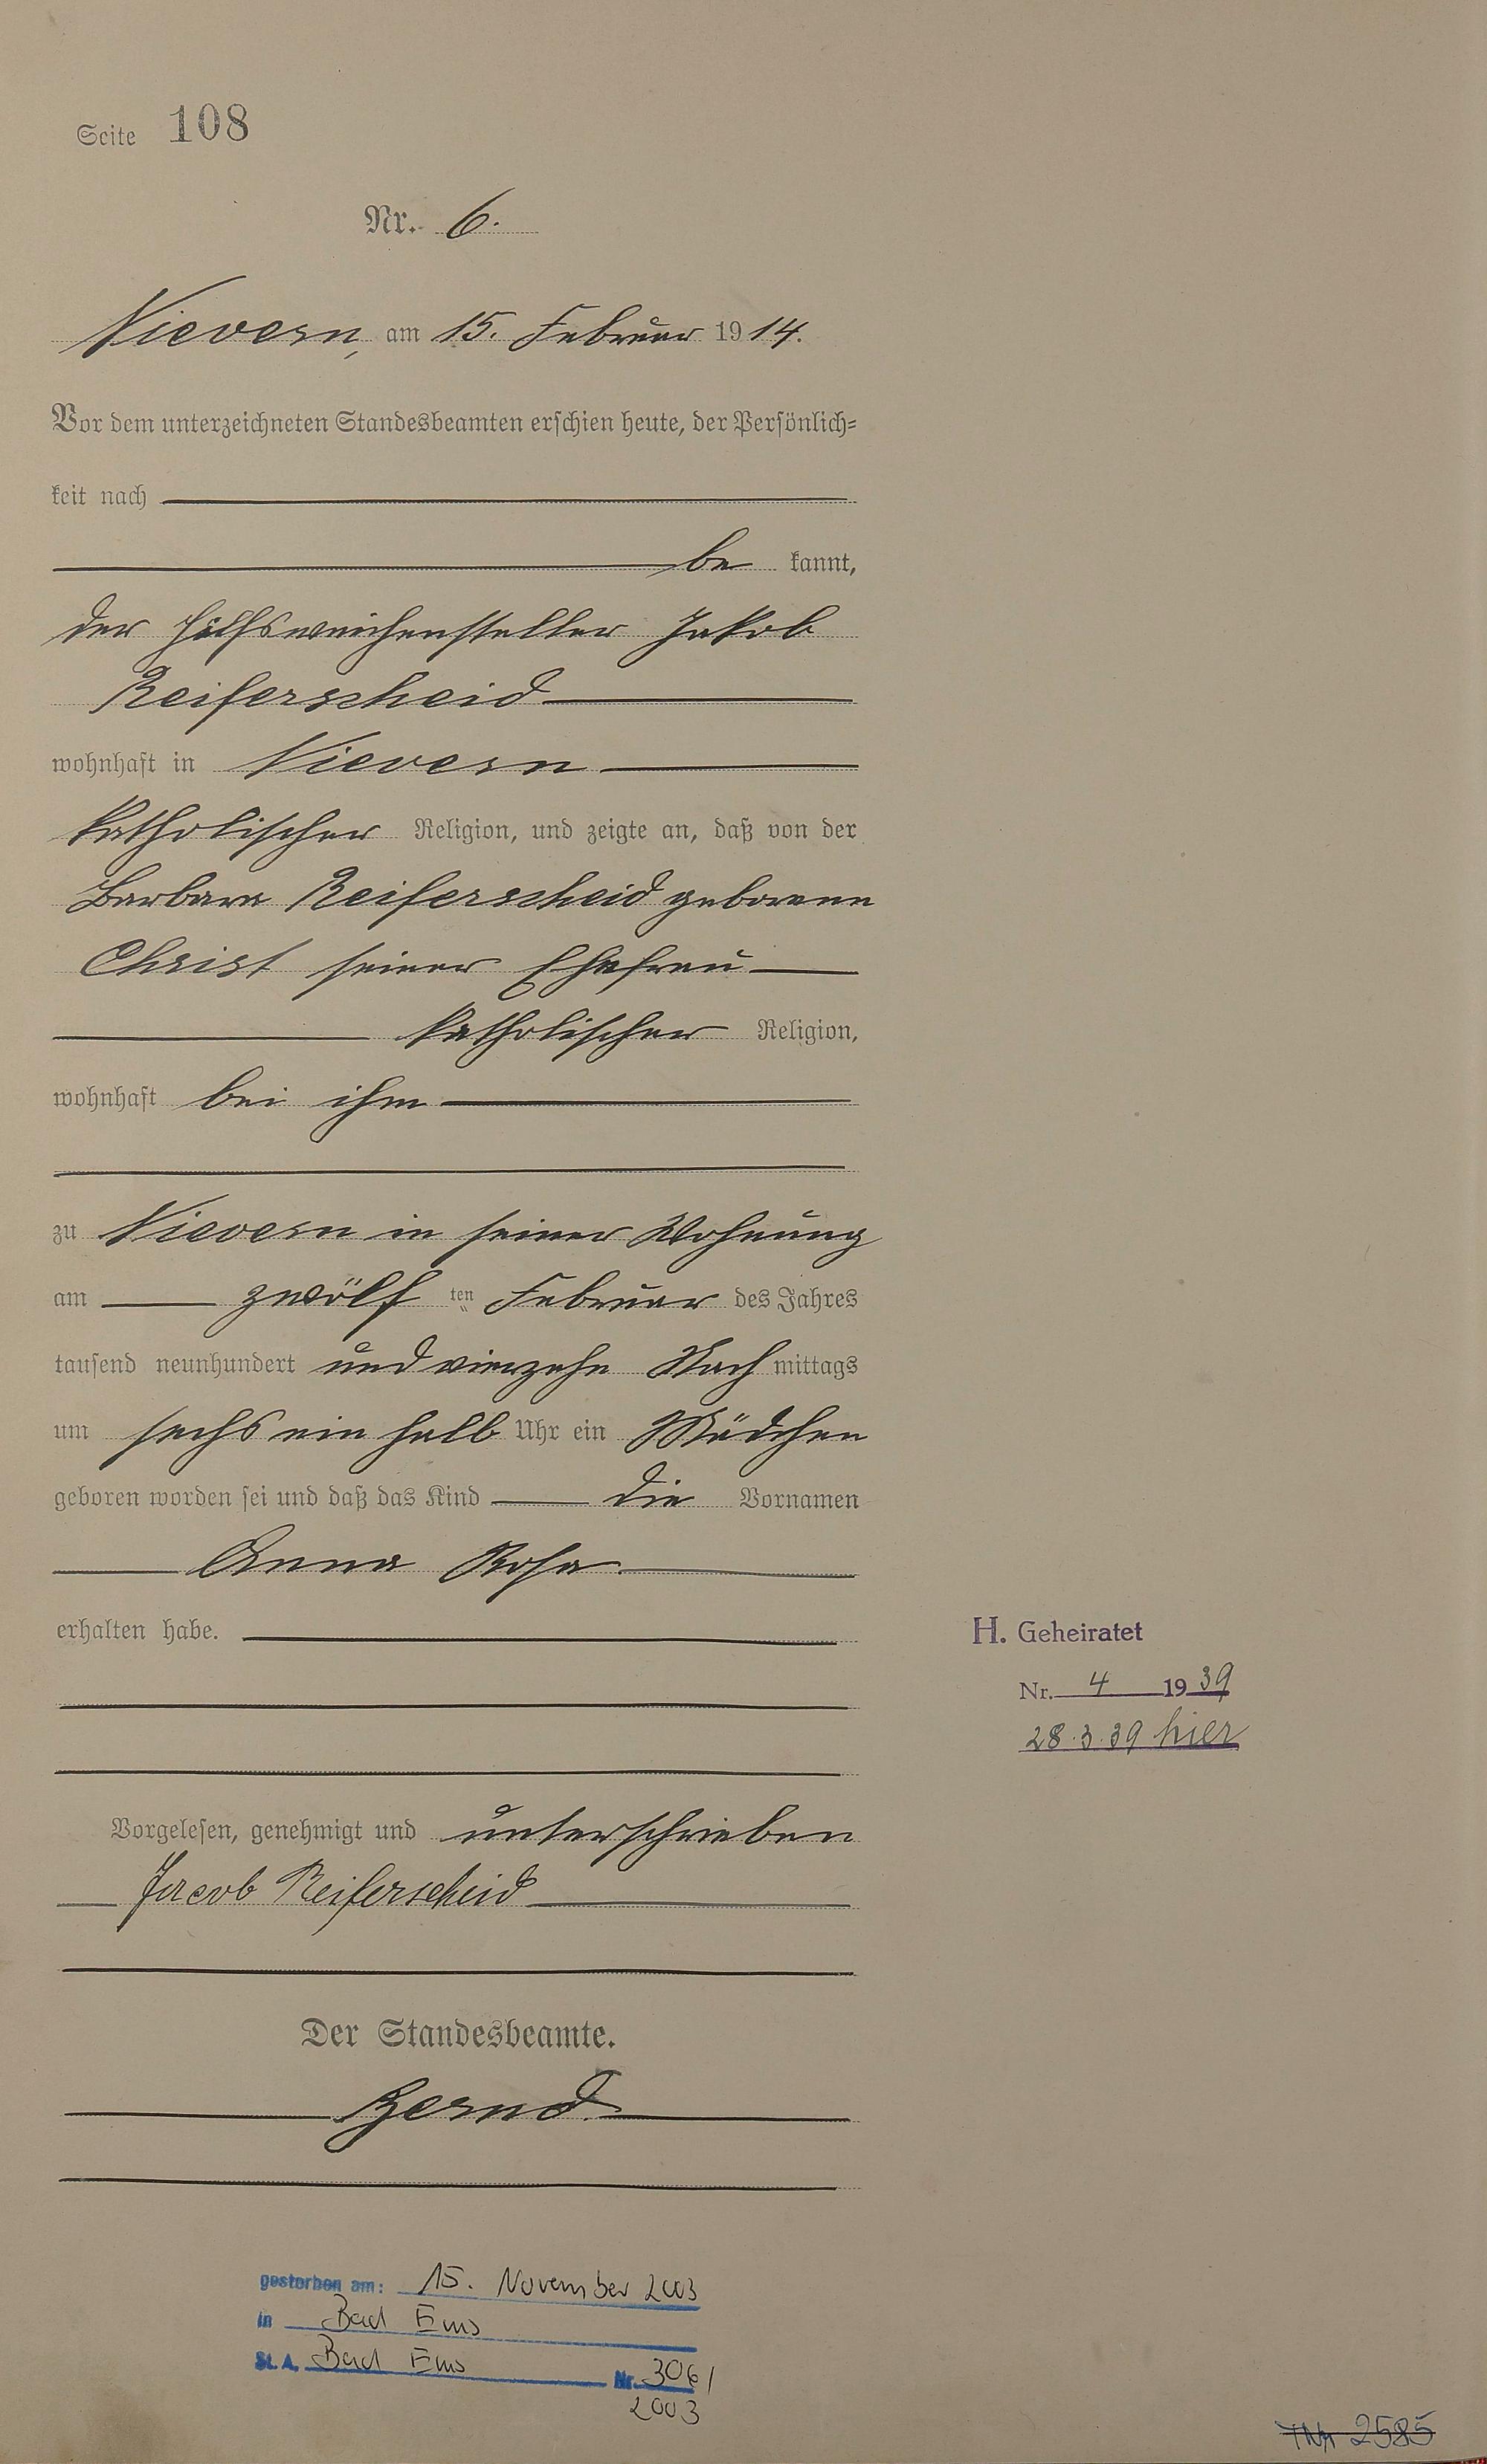 Seite 108
Nr. 6.
Nievern, am 15. Februar 1914.
Vor dem unterzeichneten Standesbeamten erschien heute, der Persönlich=
keit nach
be kannt,
der Hülfsweichensteller Jakob
Reiferscheid
wohnhaft in Nievern
katholischer Religion, und zeigte an, daß von der
Barbara Reiferscheid geborene
Christ seiner Ehefrau
katholischer Religion,
wohnhaft bei ihm
zu Nievern in seiner Wohnung
am zwölf ten Februar des Jahres
tausend neunhundert und vierzehn Nach mittags
um sechs ein halb Uhr ein Mädchen
geboren worden sei und daß das Kind die Vornamen
Anna Rosa
erhalten habe.
H. Geheiratet
Nr. 4 1939
28.3.39 hier
Vorgelesen, genehmigt und unterschrieben
Jacob Reiferscheid
Der Standesbeamte.
Bernd.
gestorben am: 15. November 2003
in Bad Ems
St. A. Bad Ems Nr. 306/
2003
2585